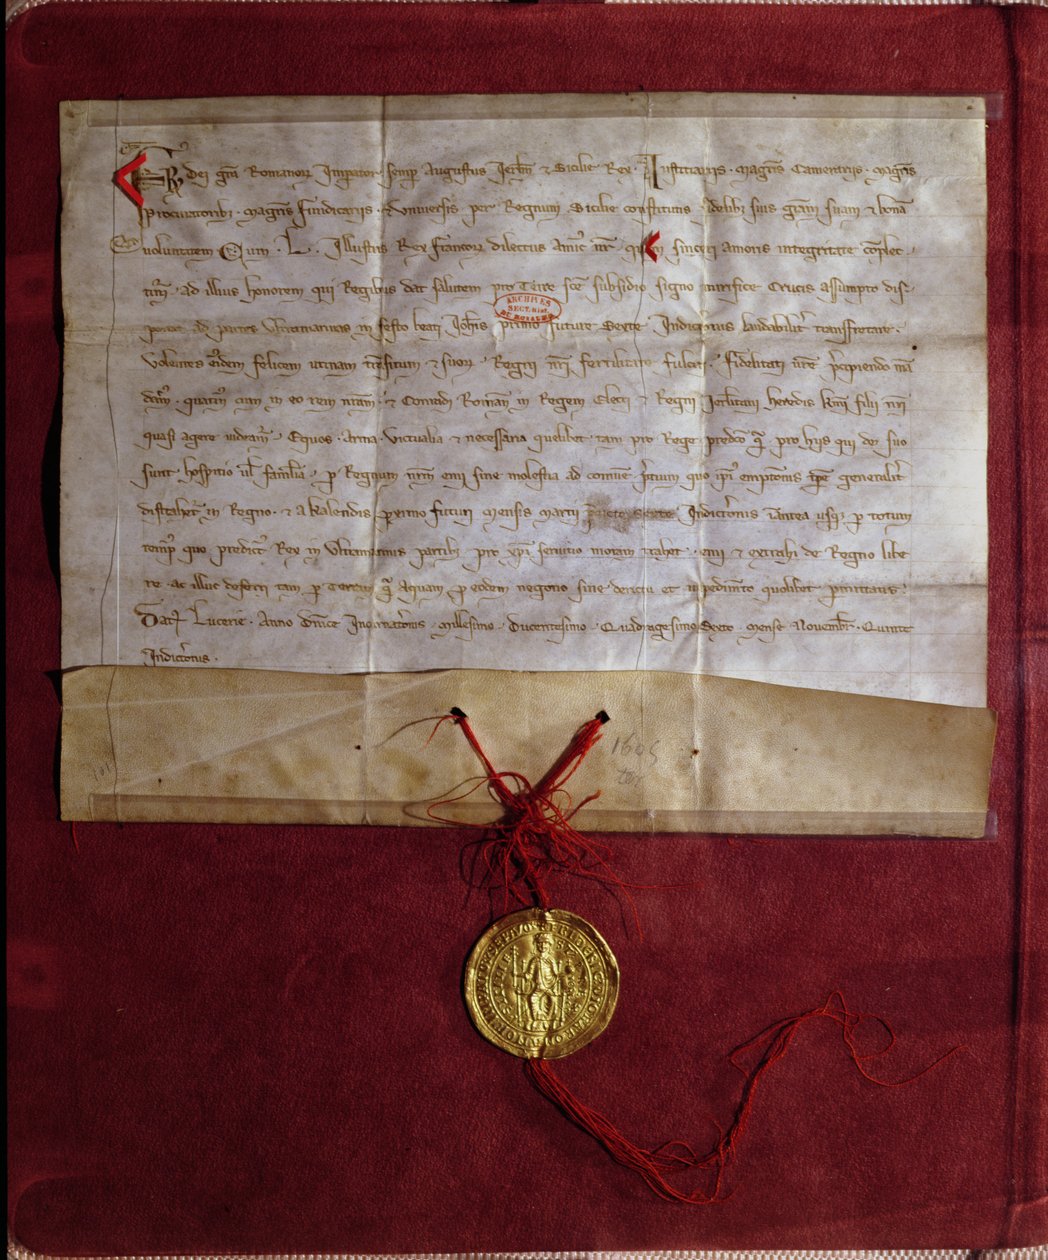 FR. dei gr̄a Romanorꝝ Imꝑator semꝑ Augustus Ierl̄m ⁊ Sicilie Rex. Iustitiariis. magr̄is Camerariis. magr̄is
procuratoribꝫ. magr̄is fundicariis. Vniuersis per Regnum Sicilie constitutis fidelibꝫ suis gr̄am suam ⁊ bonā
voluntatem Cum. L. Illustris Rex francorꝝ dilectus amic̄ nr̄. sinceri amoris integritate
ad illius honorem qui Regibus dat salutem pro Terre sc̄e subsidio signo uiuifice Crucis assumpto dis
ponat ad partes Vltramarinas in festo beati Ioh̄is primo future Sexte Indictionis laudabilit̄ transfretare.
Volentes eidem felicem utinam trāsitum ⁊ suorꝝ. Regni nr̄i fertilitate fulciri. fidelitati ur̄e p̄cipiendo mā
dam̄. quatin̄ cum in eo rem nr̄am. ⁊ Conradi Romanorꝝ in Regem Electi ⁊ Regni Ierl̄mitani heredis kr̄mi filii nr̄i
quasi agere uideam̄. Equos. Arma. victualia ⁊ necessaria quelibet. tam pro Rege predc̄o q̄ pro hiis qui de suo
sunt hospitio ul̄ familia. ꝑ Regnum nr̄m emi sine molestia ad com̄une p̄tium quo ip̄o emptionis tp̄e generalit̄
distrahet̄ in Regno. ⁊ a kalendis ꝓximo futuri mensis martij Indictionis inantea usqꝫ ꝑ totum
temp̄ quo predict̄ Rex in Vltramarinis partibꝫ pro xp̄i seruitio moram trahet. emi ⁊ extrahi de Regno libe
re. ac illuc deferri tam ꝑ Terram q̄ Aquam ꝓ eodem negotio sine derictu et inpedim̄to quolibet ꝑmittatis.
Dat̄ Lucerie. Anno dn̄ice Incarnationis. Millesimo. Ducentesimo. Quadragesimo Sexto. Mense Nouembr̄. Quinte
Indictionis.
ARCHIVES
SECT. HIST.
DU ROYAUME
1605